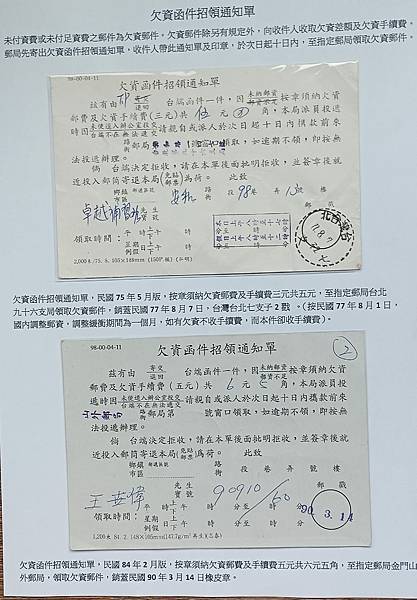 欠資函件招領通知單
未付資費或未付足資費之郵件為欠資郵件。欠資郵件除另有規定外,向收件人收取欠資差額及欠資手續費。
郵局先寄出欠資函件招領通知單,收件人帶此通知單及印章,於次日起十日內,至指定郵局領取欠資郵件。
98-00-04-11
欠資函件招領通知單
茲有由 寄交 退回 台端函件一件,因 未納郵資 郵資不足 按章須納欠資
郵費及欠資手續費(三元)共 伍 元 角,本局派員投
遞時 未便進入辦公室投交 台端不在無法遞交 請親自或派人於次日起十日內攜款前來
路 郵局 號窗口領取,如逾期不領,即按無
法投遞辦理。
倘 台端決定拒收,請在本單後面批明拒收,並簽章後就
近投入郵筒寄還本局(免貼郵票)為荷。 此致
鄉鎮 市區 郵遞區號 安和 路 街 段 98巷 弄
卓越補習班 先生 寶號 郵 戳
領取時間: 平 時 上 下 午 時
星期 例假 日
2,000本/75. 5. 105×148mm (150P.模) (永明)
欠資函件招領通知單,民國 75 年 5 月版,按章須納欠資郵費及手續費三元共五元,至指定郵局台北
九十六支局領取欠資郵件,銷蓋民國 77 年 8 月 7 日,台灣台北七支子 2 戳 。(按民國 77 年 8 月 1 日,
國內調整郵資,調整緩衝期間為一個月,如有欠資不收手續費,而本件卻收手續費)。
98-00-04-11
欠資函件招領通知單
2
茲有由 寄交 退回 台端函件一件,因 未納郵資 郵資不足 按章須納欠資
郵費及欠資手續費(五元)共 6 元 5 角,本局派員投
遞時 未便進入辦公室投交 台端不在無法遞交 請親自或派人於次日起十日內攜款前來
山外郵局 路 街 郵局第 號窗口領取,如逾期不領,即按無
法投遞辦理。
倘 台端決定拒收,請在本單後面批明拒收,並簽章後就
近投入郵筒寄還本局(免貼郵票)為荷。 此致
鄉鎮 市區 郵遞區號 路 街 段 巷 弄 號 樓
先生 寶號 90910/60 郵 戳
領取時間: 平 時 上 下 午 時 分至 時 分
星期 例假 日 上 下 午 時 分至 時 分
90. 3. 14
1,200本 84. 2. 148×105mm(147.7g/m²再生)(芯泰)
欠資函件招領通知單,民國 84 年 2 月版,按章須納欠資郵費及手續費五元共六元五角,至指定郵局金門山
外郵局,領取欠資郵件,銷蓋民國 90 年 3 月 14 日橡皮章。